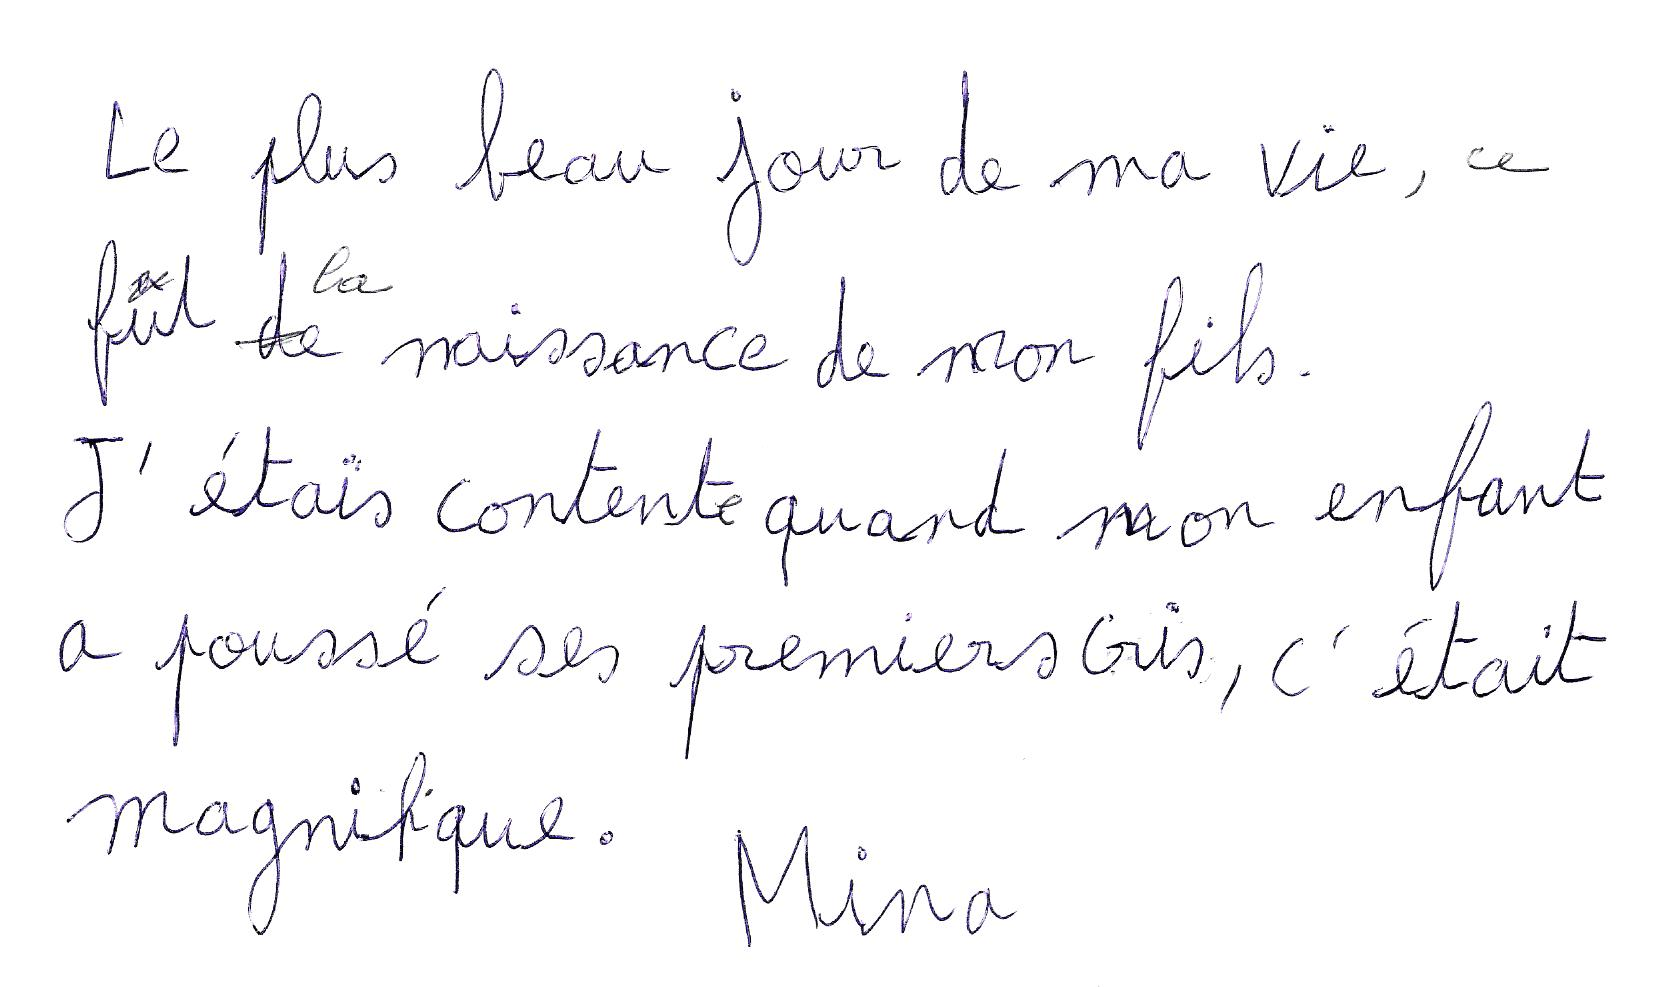 Le plus beau jour de ma vie, ce
fut la naissance de mon fils.
J'étais contente quand mon enfant
a poussé ses premiers cris, c'était
magnifique.
Mina